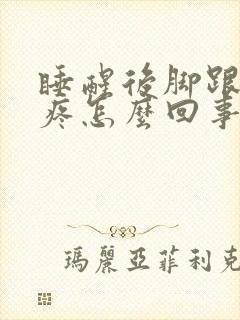 睡醒後腳跟
疼怎麼回事
瑪麗亞菲利克